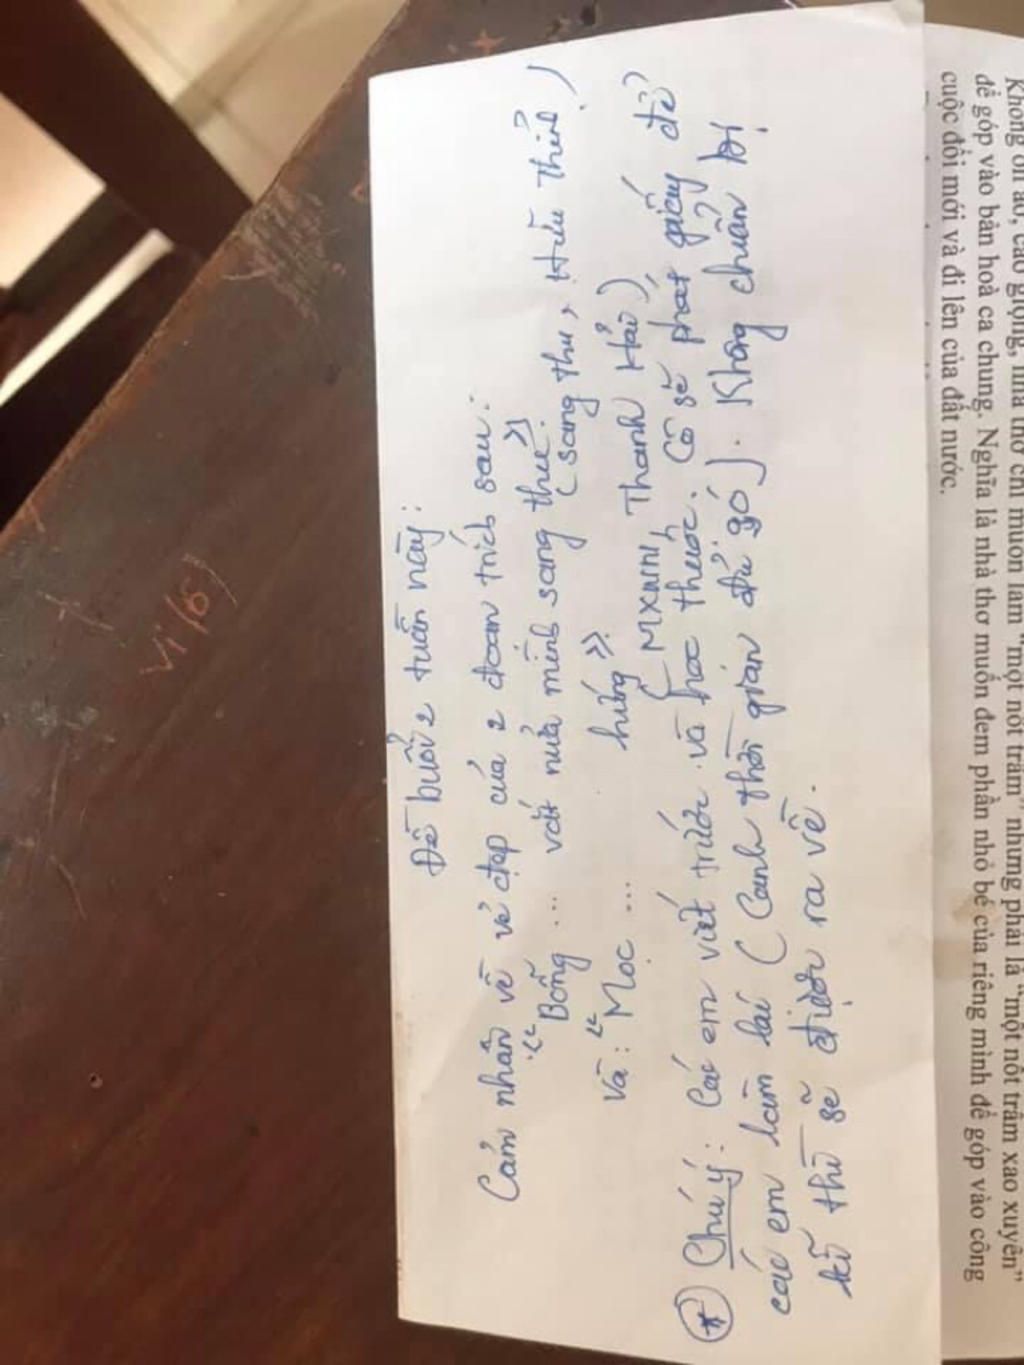 Đề buổi 2 tuần này:
Cảm nhận về vẻ đẹp của 2 đoạn trích sau:
"Bỗng ... vắt nửa mình sang thu".
(Sang thu, Hữu Thỉnh)
Và: "Mọc ... hứng".
(MXNN, Thanh Hải)
* Chú ý: Các em viết trước và học thuộc. Cô sẽ phát giấy để
các em làm lại (Canh thời gian đủ gó). Không chuẩn bị
kĩ thì sẽ được ra về.
Không ồn ào, cao giọng, nhà thơ chỉ muốn làm "một nốt trầm" nhưng phải là "một nốt trầm xao xuyến"
để góp vào bản hoà ca chung. Nghĩa là nhà thơ muốn đem phần nhỏ bé của riêng mình để góp vào công
cuộc đổi mới và đi lên của đất nước.